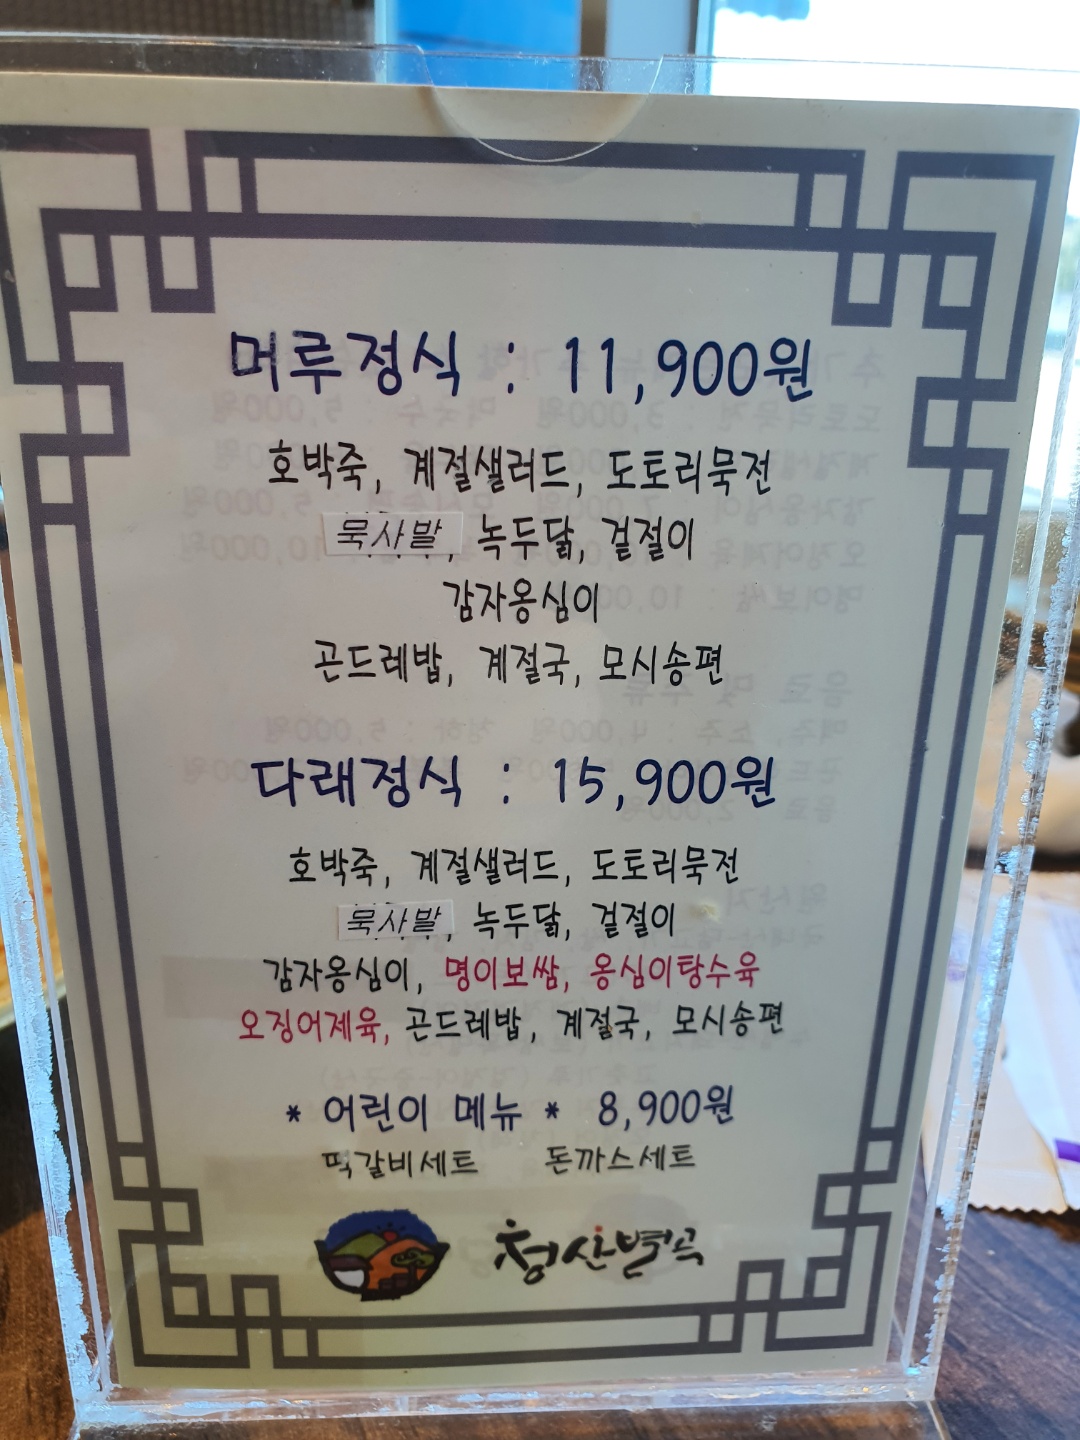 머루정식 : 11,900원
호박죽, 계절샐러드, 도토리묵전
묵사발, 녹두닭, 겉절이
감자옹심이
곤드레밥, 계절국, 모시송편
다래정식 : 15,900원
호박죽, 계절샐러드, 도토리묵전
묵사발, 녹두닭, 겉절이
감자옹심이, 명이보쌈, 옹심이탕수육
오징어제육, 곤드레밥, 계절국, 모시송편
* 어린이 메뉴 * 8,900원
떡갈비세트 돈까스세트
청산별곡